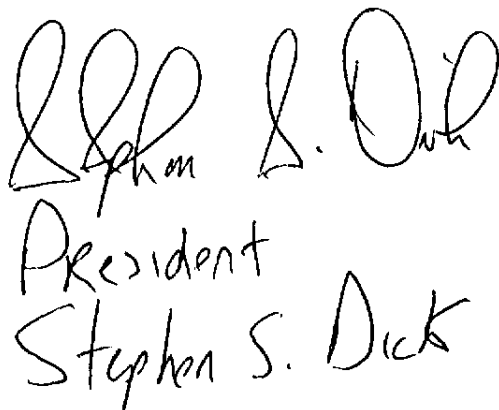 Stephen S. Dick
President
Stephen S. Dick